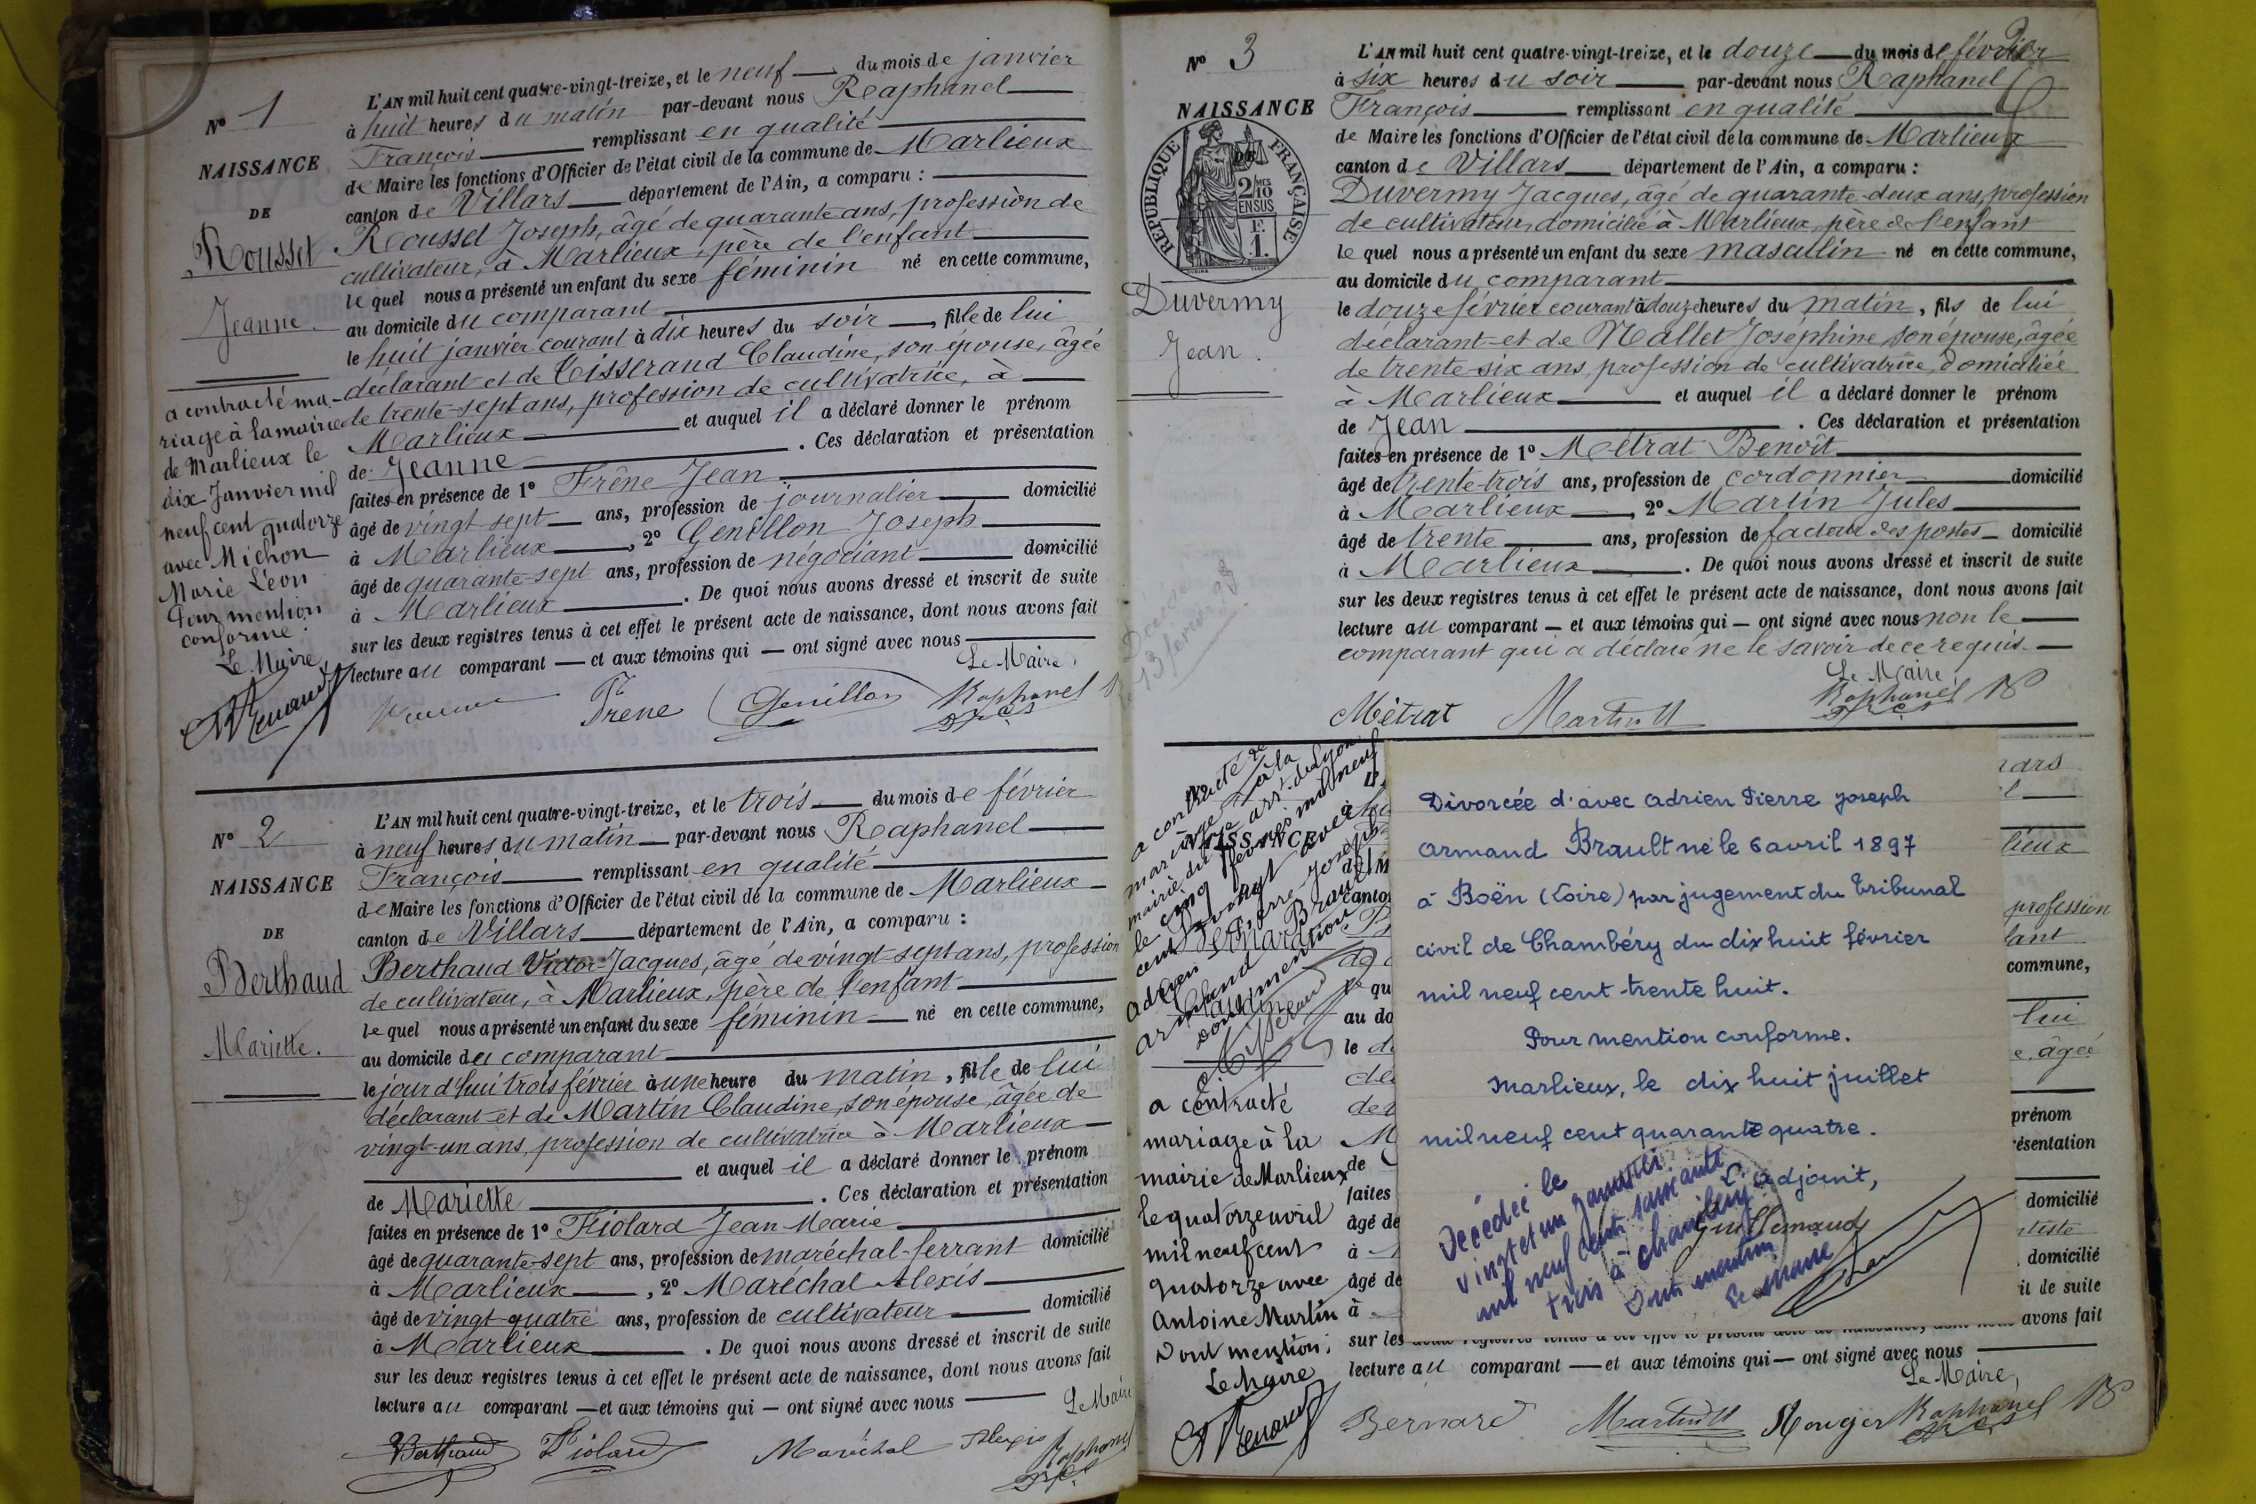 N° 1
NAISSANCE
DE
Rousset
Jeanne.
a contracté ma-
riage à la mairie
de Marlieux le
dix Janvier mil
neuf cent quatorze
avec Michon
Marie Léon
Pour mention
conforme.
Le Maire,
L'AN mil huit cent quatre-vingt-treize, et le neuf du mois de janvier
à huit heures du matin par-devant nous Raphanel
François remplissant en qualité
de Maire les fonctions d'Officier de l'état civil de la commune de Marlieux
canton de Villars département de l'Ain, a comparu :
Rousset Joseph, âgé de quarante ans, profession de
cultivateur, à Marlieux, père de l'enfant
le quel nous a présenté un enfant du sexe féminin né en cette commune,
au domicile du comparant
le huit janvier courant à dix heures du soir, fille de lui
déclarant et de Tisserand Claudine, son épouse, âgée
de trente-sept ans, profession de cultivatrice, à
Marlieux et auquel il a déclaré donner le prénom
de Jeanne. Ces déclaration et présentation
faites en présence de 1° Frêne Jean
âgé de vingt-sept ans, profession de journalier domicilié
à Marlieux, 2° Genillon Joseph
âgé de quarante-sept ans, profession de négociant domicilié
à Marlieux. De quoi nous avons dressé et inscrit de suite
sur les deux registres tenus à cet effet le présent acte de naissance, dont nous avons fait
lecture au comparant — et aux témoins qui — ont signé avec nous
Le Maire,
Frene Genillon Raphanel
N° 2
NAISSANCE
DE
Berthaud
Mariette.
L'AN mil huit cent quatre-vingt-treize, et le trois du mois de février
à neuf heures du matin par-devant nous Raphanel
François remplissant en qualité
de Maire les fonctions d'Officier de l'état civil de la commune de Marlieux
canton de Villars département de l'Ain, a comparu :
Berthaud Victor-Jacques, âgé de vingt-sept ans, profession
de cultivateur, à Marlieux, père de l'enfant
le quel nous a présenté un enfant du sexe féminin né en cette commune,
au domicile du comparant
le jourd'hui trois février à une heure du matin, fille de lui
déclarant et de Martin Claudine, son épouse, âgée de
vingt-un ans, profession de cultivatrice à Marlieux
et auquel il a déclaré donner le prénom
de Mariette. Ces déclaration et présentation
faites en présence de 1° Fiolard Jean-Marie
âgé de quarante-sept ans, profession de maréchal-ferrant domicilié
à Marlieux, 2° Maréchal Alexis
âgé de vingt-quatre ans, profession de cultivateur domicilié
à Marlieux. De quoi nous avons dressé et inscrit de suite
sur les deux registres tenus à cet effet le présent acte de naissance, dont nous avons fait
lecture au comparant — et aux témoins qui — ont signé avec nous
Le Maire
Berthaud Fiolard Maréchal Alexis Raphanel
N° 3
NAISSANCE
DE
RÉPUBLIQUE FRANÇAISE
2/10
EN SUS
1F.
Duvermy
Jean.
L'AN mil huit cent quatre-vingt-treize, et le douze du mois de février
à six heures du soir par-devant nous Raphanel
François remplissant en qualité
de Maire les fonctions d'Officier de l'état civil de la commune de Marlieux
canton de Villars département de l'Ain, a comparu :
Duvermy Jacques, âgé de quarante-deux ans, profession
de cultivateur, domicilié à Marlieux, père de l'enfant
le quel nous a présenté un enfant du sexe masculin né en cette commune,
au domicile du comparant
le douze février courant à douze heures du matin, fils de lui
déclarant et de Mallet Joséphine son épouse, âgée
de trente-six ans, profession de cultivatrice, domiciliée
à Marlieux et auquel il a déclaré donner le prénom
de Jean. Ces déclaration et présentation
faites en présence de 1° Métrat Benoît
âgé de trente-trois ans, profession de cordonnier domicilié
à Marlieux, 2° Martin Jules
âgé de trente ans, profession de facteur des postes domicilié
à Marlieux. De quoi nous avons dressé et inscrit de suite
sur les deux registres tenus à cet effet le présent acte de naissance, dont nous avons fait
lecture au comparant — et aux témoins qui — ont signé avec nous non le
comparant qui a déclaré ne le savoir de ce requis.
Le Maire,
Métrat Martin Raphanel
a contracté
mariage à la
mairie du
le cinq février mil neuf
cent vingt avec
Adrien Pierre Joseph
Armand Brault
Dont mention
NAISSANCE
a contracté
mariage à la
mairie de Marlieux
le quatorze avril
mil neuf cent
quatorze avec
Antoine Martin
Dont mention :
Le Maire
Divorcée d'avec Adrien Pierre Joseph
Armand Brault né le 6 avril 1897
à Boën (Loire) par jugement du Tribunal
civil de Chambéry du dix huit février
mil neuf cent trente huit.
Pour mention conforme.
Marlieux, le dix huit juillet
mil neuf cent quarante quatre.
L'adjoint,
Guillemaud
Décédée le
vingt et un janvier
mil neuf cent soixante
trois à Chambéry
Dont mention
Le Maire
profession
commune,
lui
e, âgée
prénom
ésentation
domicilié
domicilié
it de suite
avons fait
lecture au comparant — et aux témoins qui — ont signé avec nous
Le Maire,
Bernard Martin Rouger Raphanel